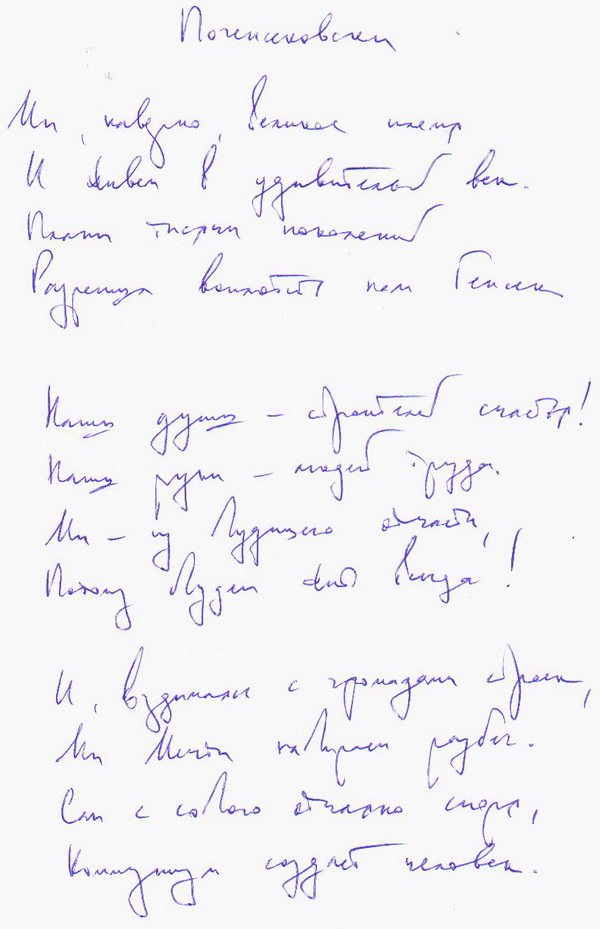 Мы, наверно, Великое племя
И живём в удивительный век.
Планы тысячи поколений
Разрешил воплотить нам Генсек

Наши души – строителей счастья!
Наши руки – людей труда.
Мы – из будущего отчасти,
Потому будем жить Всегда!

И, вздымаясь с громадами строек,
Мы Мечты набираем разбег.
Сам с собою отчаянно споря,
Коммунизм создаёт человек.